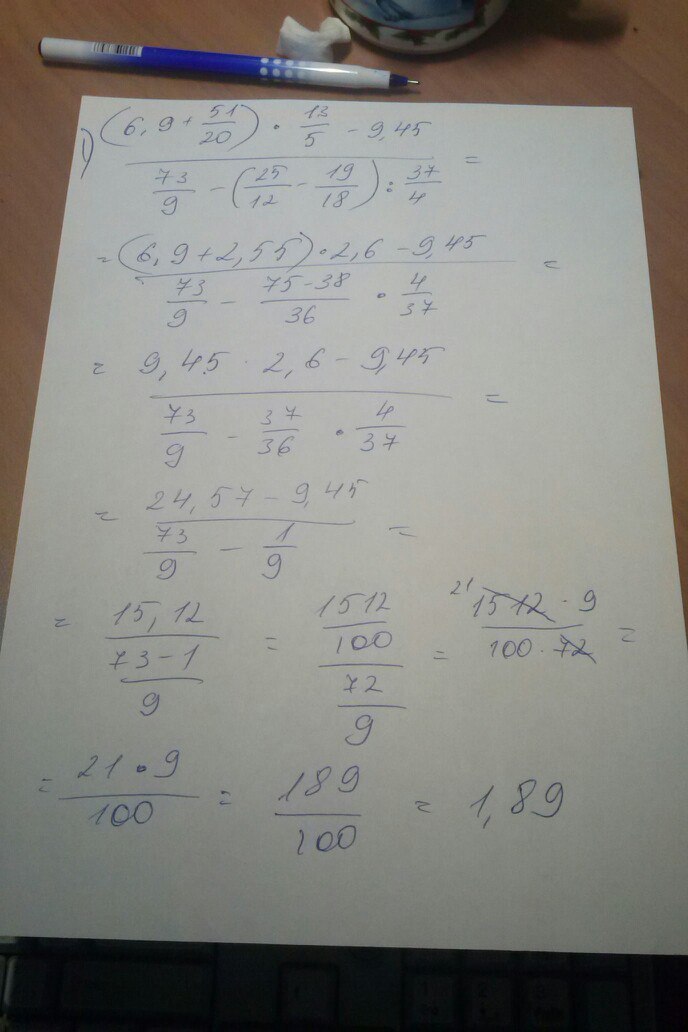 1) ((6,9 + 51/20) · 13/5 - 9,45) / (73/9 - (25/12 - 19/18) : 37/4) =
= ((6,9 + 2,55) · 2,6 - 9,45) / (73/9 - (75-38)/36 · 4/37) =
= (9,45 · 2,6 - 9,45) / (73/9 - 37/36 · 4/37) =
= (24,57 - 9,45) / (73/9 - 1/9) =
= 15,12 / ((73-1)/9) = (1512/100) / (72/9) = 21 1512 · 9 / (100 · 72) =
= 21 · 9 / 100 = 189/100 = 1,89